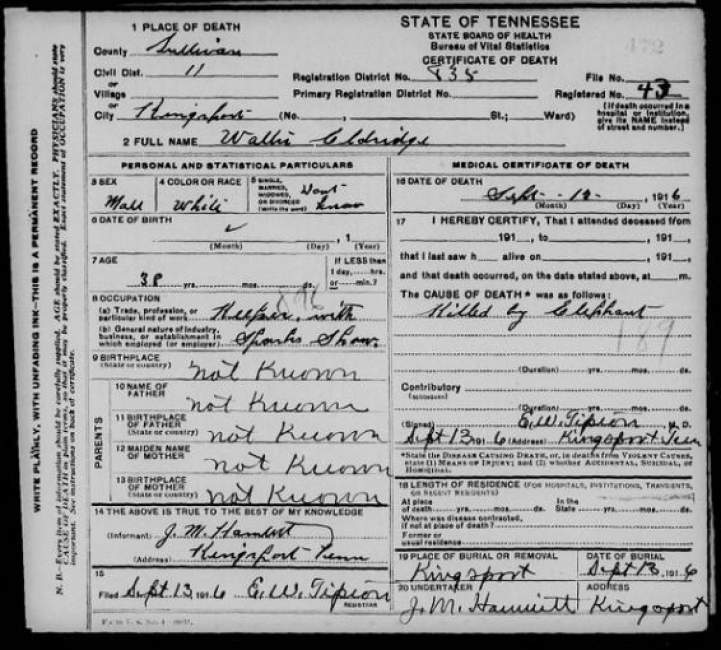 WRITE PLAINLY, WITH UNFADING INK—THIS IS A PERMANENT RECORD
N. B.—Every item of information should be carefully supplied. AGE should be stated EXACTLY. PHYSICIANS should state
CAUSE OF DEATH in plain terms, so that it may be properly classified. Exact statement of OCCUPATION is very
important. See instructions on back of certificate.
1 PLACE OF DEATH
County Sullivan
Civil Dist. 11
or
Village
or
City Kingsport (No. St.; Ward)
STATE OF TENNESSEE
STATE BOARD OF HEALTH
Bureau of Vital Statistics
CERTIFICATE OF DEATH
Registration District No. 835 File No.
Primary Registration District No. Registered No. 43
(If death occurred in a
hospital or institution,
give its NAME instead
of street and number.)
2 FULL NAME Wallis Eldridge
PERSONAL AND STATISTICAL PARTICULARS
3 SEX
Male
4 COLOR OR RACE
White
5 SINGLE,
MARRIED,
WIDOWED,
OR DIVORCED
(Write the word)
Dont
Know
6 DATE OF BIRTH
(Month) (Day) , 1 (Year)
7 AGE
38 yrs. mos. ds.
If LESS than
1 day, hrs.
or min.?
8 OCCUPATION
(a) Trade, profession, or
particular kind of work Keeper, with
(b) General nature of industry,
business, or establishment in
which employed (or employer) Sparks Show.
9 BIRTHPLACE
(State or country) not Known
PARENTS
10 NAME OF
FATHER not Known
11 BIRTHPLACE
OF FATHER
(State or country) not Known
12 MAIDEN NAME
OF MOTHER not Known
13 BIRTHPLACE
OF MOTHER
(State or country) not Known
14 THE ABOVE IS TRUE TO THE BEST OF MY KNOWLEDGE
(Informant) J. M.
(Address) Kingsport Tenn
15
Filed Sept 13, 1916 E. W. Tipton
REGISTRAR
MEDICAL CERTIFICATE OF DEATH
16 DATE OF DEATH
Sept - 12 - , 1916
(Month) (Day) (Year)
17 I HEREBY CERTIFY, That I attended deceased from
191 , to , 191 ,
that I last saw h alive on , 191 ,
and that death occurred, on the date stated above, at m.
The CAUSE OF DEATH* was as follows:
Killed by Elephant
189
(Duration) yrs. mos. ds.
Contributory
(SECONDARY)
(Duration) yrs. mos. ds.
(Signed) E. W. Tipton M. D.
Sept 13, 1916 (Address) Kingsport Tenn
*State the DISEASE CAUSING DEATH, or, in deaths from VIOLENT CAUSES,
state (1) MEANS OF INJURY; and (2) whether ACCIDENTAL, SUICIDAL, or
HOMICIDAL.
18 LENGTH OF RESIDENCE (FOR HOSPITALS, INSTITUTIONS, TRANSIENTS,
OR RECENT RESIDENTS)
At place
of death yrs. mos. ds.
In the
State yrs. mos. ds.
Where was disease contracted,
if not at place of death?
Former or
usual residence
19 PLACE OF BURIAL OR REMOVAL
Kingsport
DATE OF BURIAL
Sept 13, 1916
20 UNDERTAKER
J. M.
ADDRESS
Kingsport